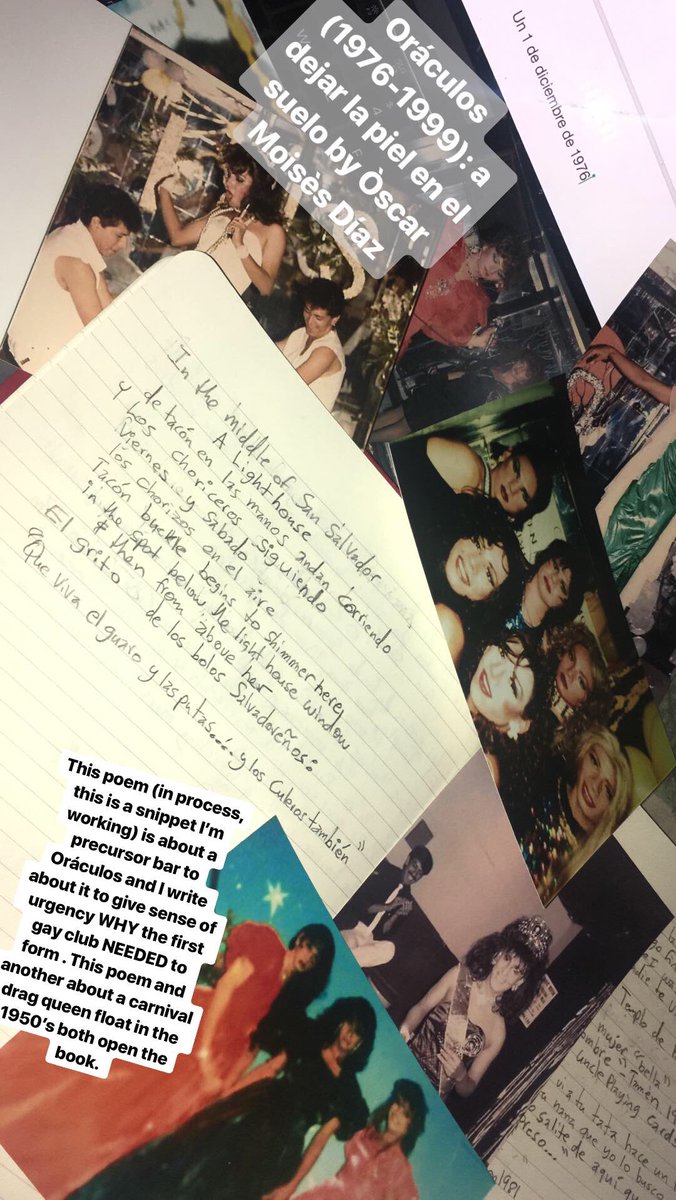 Oráculos
(1976-1999): a
dejar la piel en el
suelo by Òscar
Moisès Díaz
Un 1 de diciembre de 1976
In the middle of San Salvador
A Lighthouse
de tacón en las manos andan corriendo
y los choriceros siguiendo
Viernes y Sabado
los chorizos en el aire
Tacón buckle begins to shimmer here,
in the spot below the lighthouse window
& then from above her
El grito de los bolos Salvadoreños:
"Que viva el guaro y las putas.... y los Culeros también"
This poem (in process,
this is a snippet I'm
working) is about a
precursor bar to
Oráculos and I write
about it to give sense of
urgency WHY the first
gay club NEEDED to
form . This poem and
another about a carnival
drag queen float in the
1950's both open the
book.
Templo de
mujer "bella"
uncle playing cards
vi a tu tata hace un
nana que yo lo busco
salite de aquí
preso..."
1981